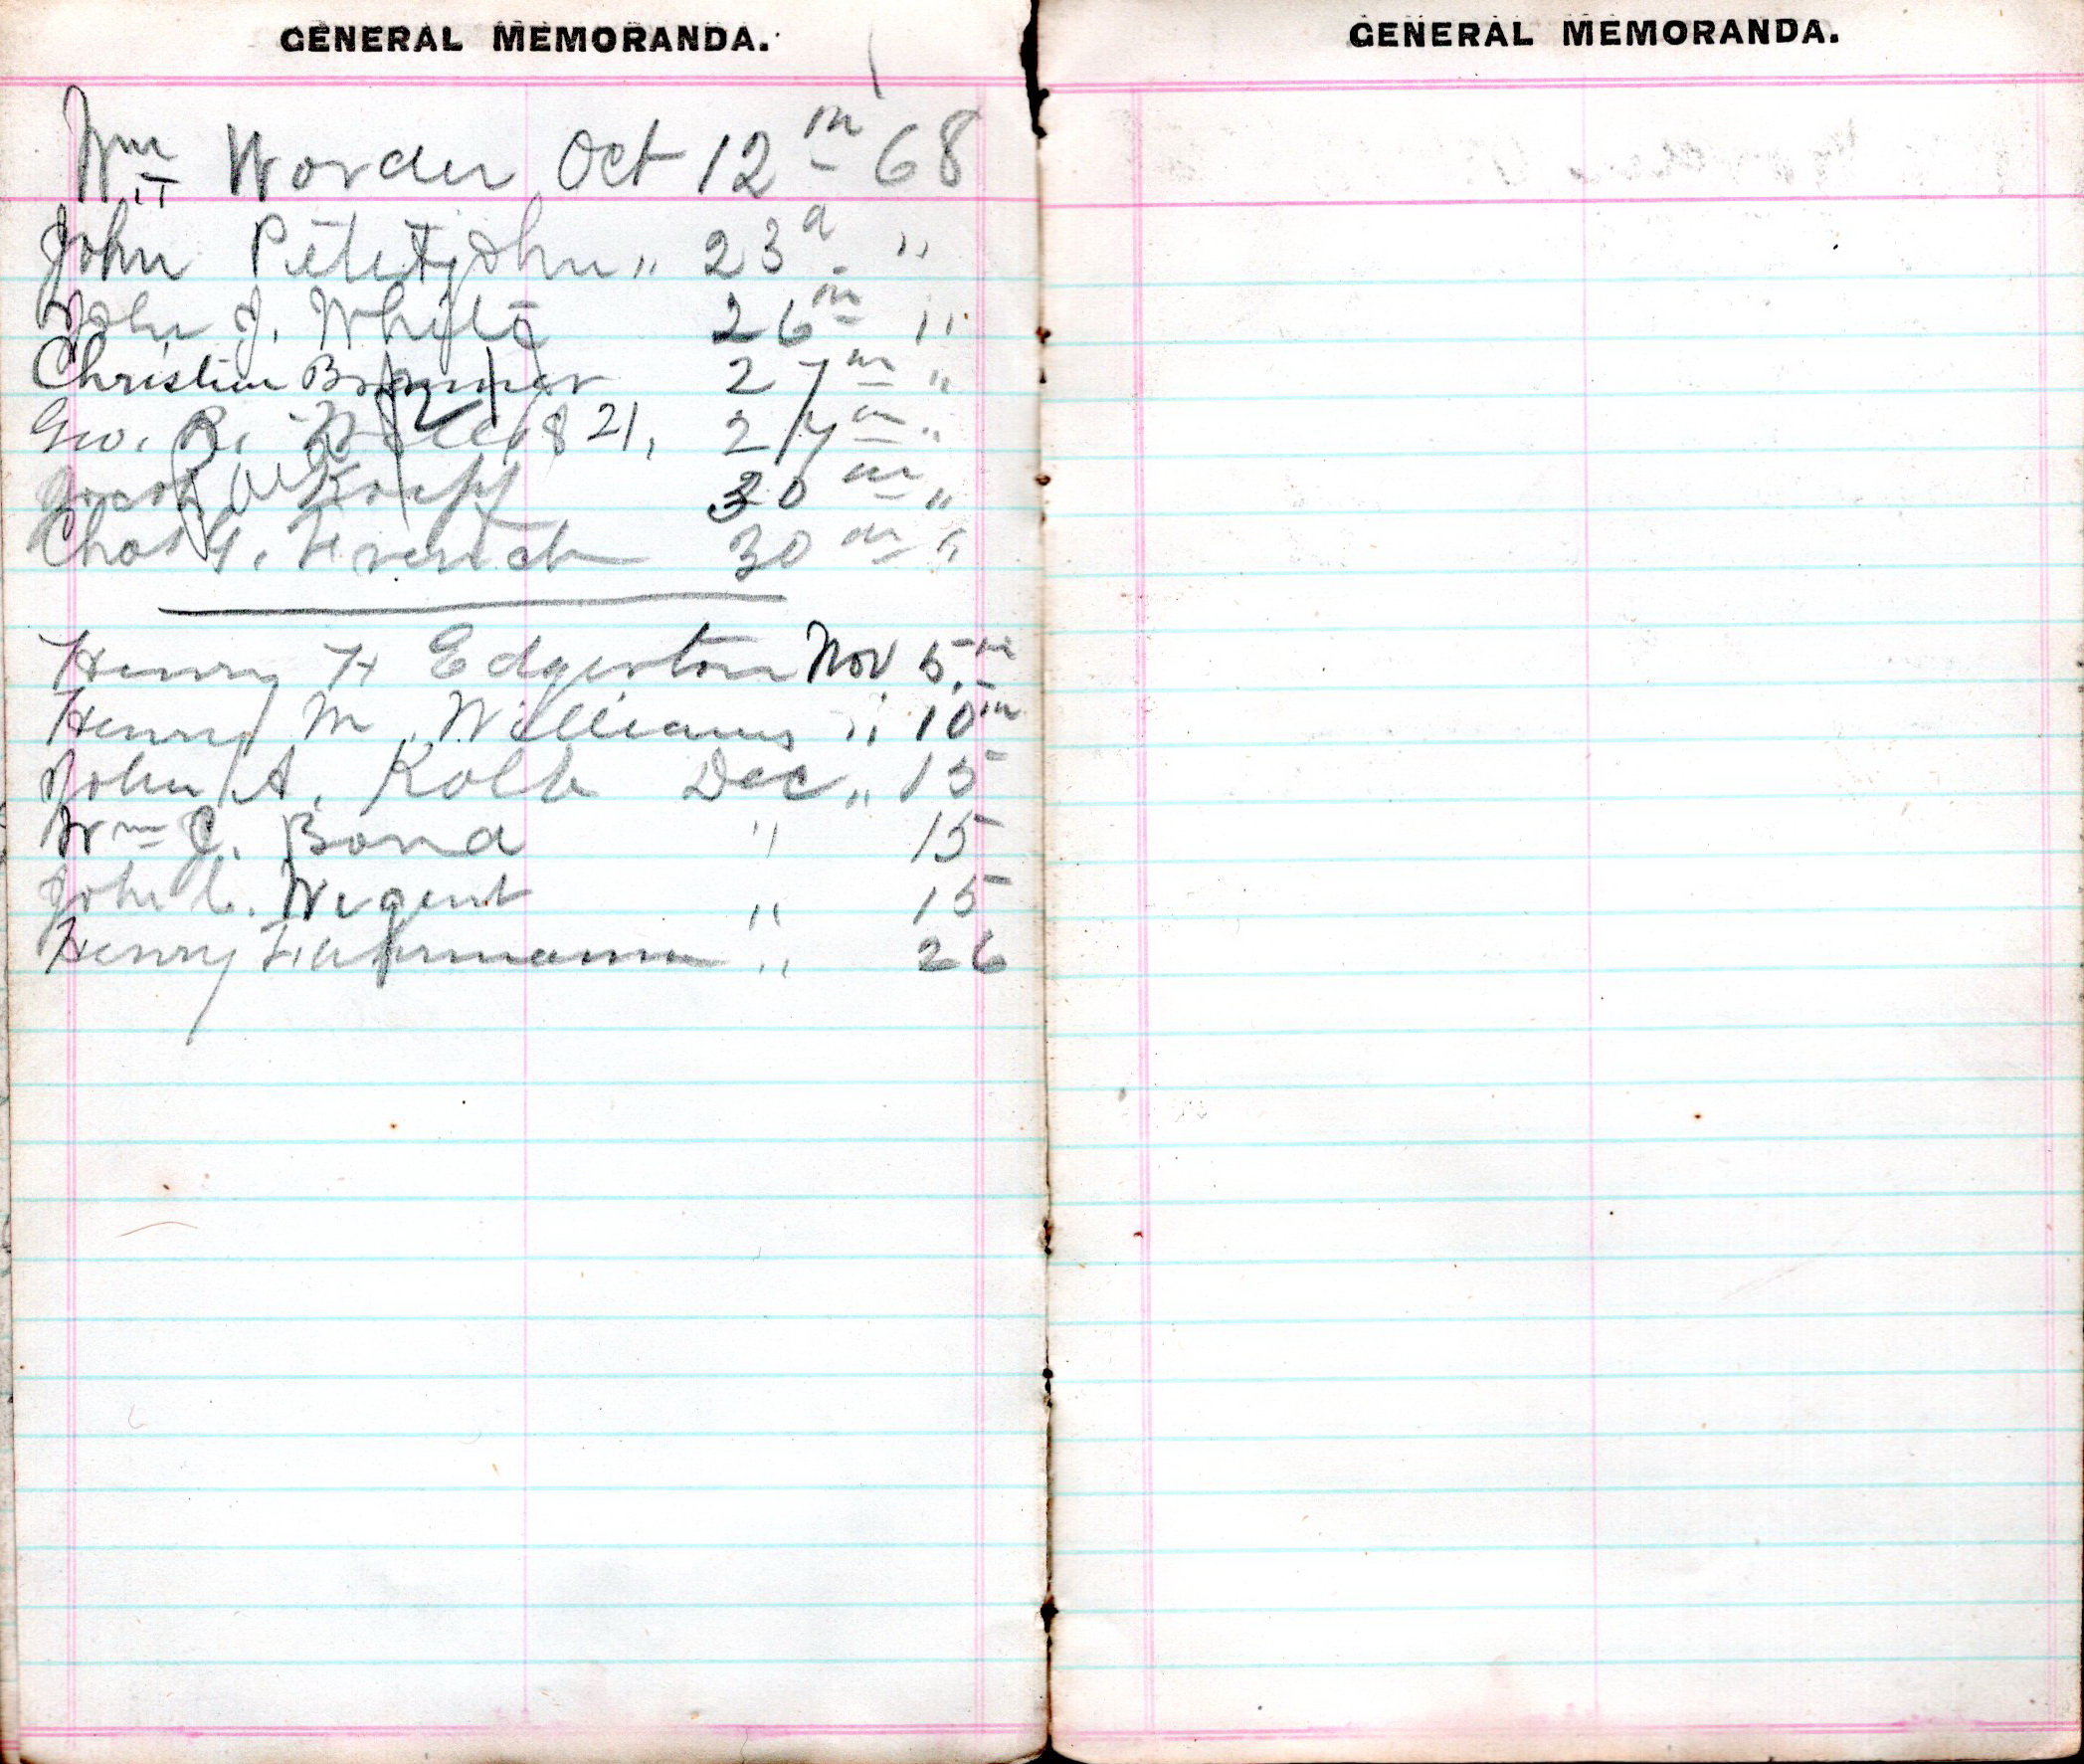 GENERAL MEMORANDA.
Wm Worden Oct 12th 68
John Petitjohn " 23d "
John J. White 26th "
Christian 27th "
Geo. R. 1821, 27th "
Jacob 30th "
Chas G. French 30th "
Henry H Edgerton Nov 5th
Henry M. Williams " 10th
John A. Kolb Dec " 15
Wm J. Bond " 15
John C. Wigent " 15
Henry Fuhrmann " 26
GENERAL MEMORANDA.